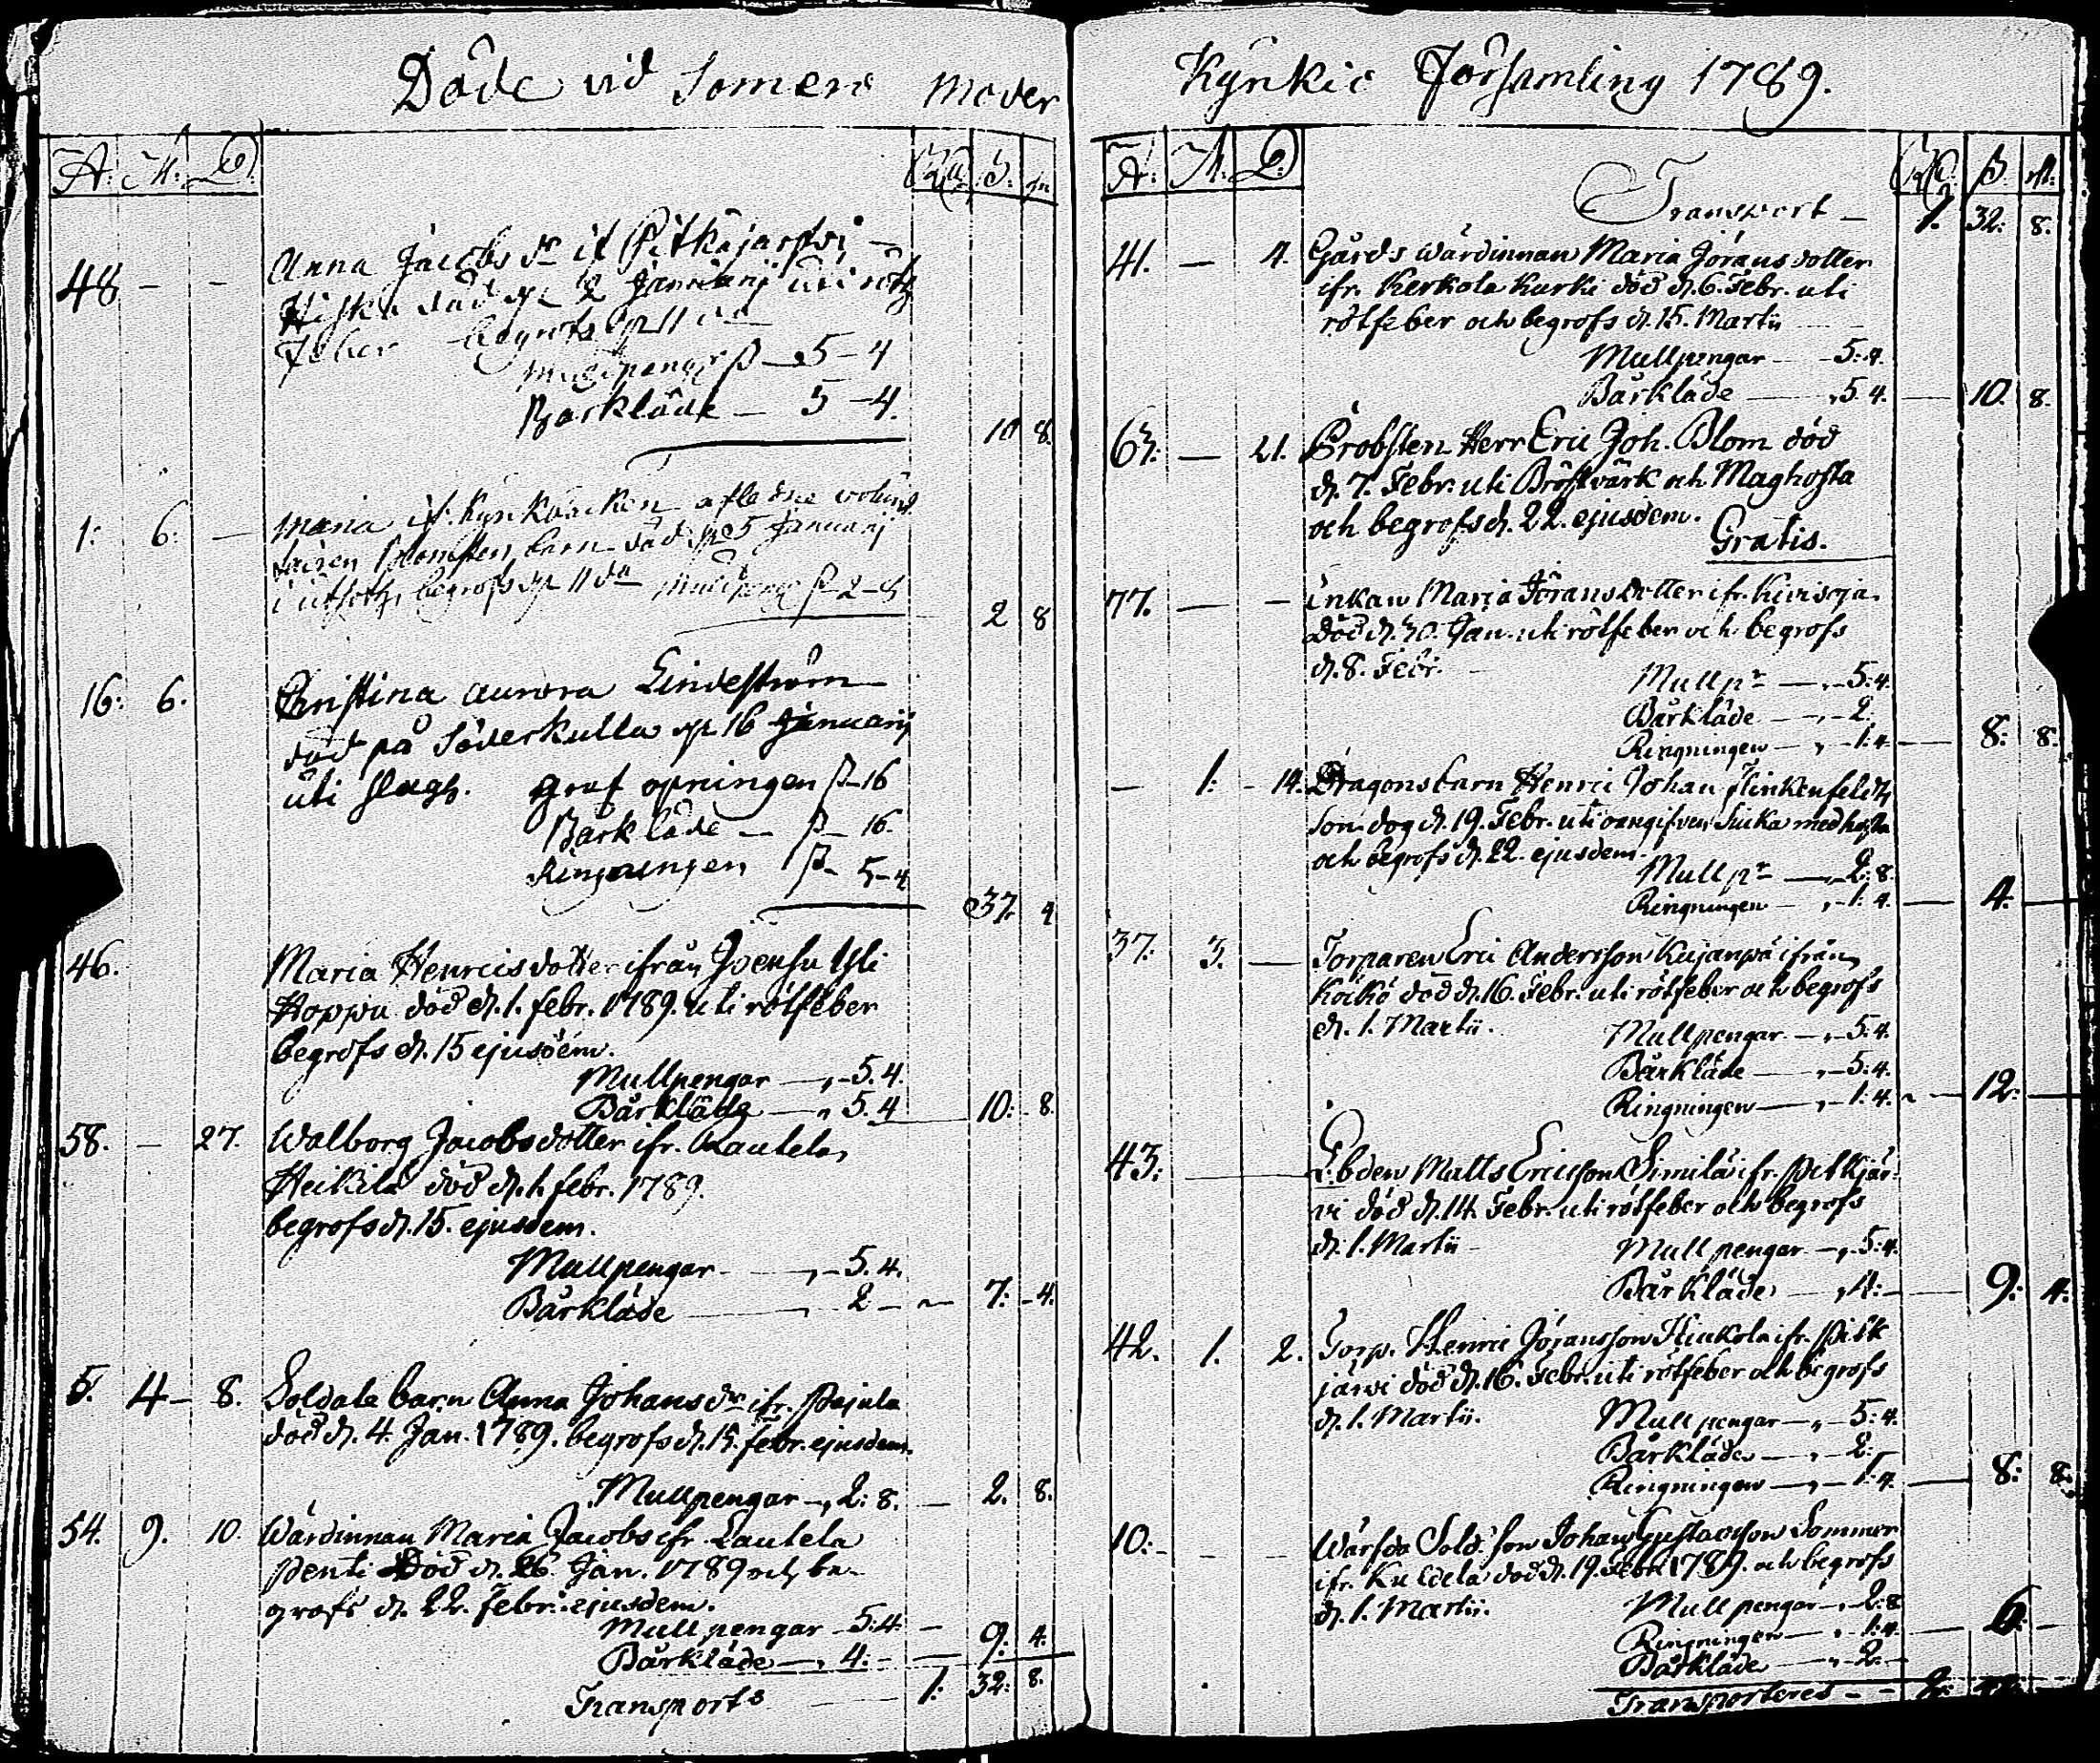 Döde vid Somero moder
A. M. D. Rd. S. r.
48 - - Anna Jacobs dr if Pitkäjärfwi
Hiska död d. 2 Januarij uti röt
feber begrofs d. 11 
mullpeng ß 5-4
Bårkläde - 5-4.
10 8.
1: 6: - Maria if. Kyrkbacken afledne 
barn död d. 5 Januarij
begrofs d. 11 da mullpeng ß 2-8
2 8
16: 6. Christina aurora Lindeström
död på Söderkulla d. 16 Januarij
uti slag. graf opningen ß-16
Bårkläde - ß- 16.
Ringningen ß- 5-4
37. 4
46. Maria Henricsdotter ifrån Joensu Yli
Hoppu död d. 1. febr. 1789. uti rötfeber
begrofs d. 15 ejusdem.
Mullpengar -,,-5.4.
Bårkläde -,, 5.4 10:- 8.
58. - 27. Walborg Jacobsdotter ifr. Lautela
Heikilä död d. 1. febr. 1789.
begrofs d. 15. ejusdem.
Mullpengar -,,-5.4.
Bårkläde 2 - 7:-4.
5. 4- 8. Soldate barn Anna Johans dr ifr. Pajula
död d. 4. Jan. 1789. begrofs d. 15. febr. ejusdem.
Mullpengar -,, 2:8. - 2. 8.
54. 9. 10. Wärdinnan Maria Jacobs ifr Lautela
Penti Död d. 26. Jan. 1789 och be-
grofs d. 22. febr. ejusdem.
Mullpengar - 5:4. -
Bårkläde -,, 4:- 9: 4.
Transport 1: 32: 8.
Kyrkio Församling 1789.
A. M. D. Rd. ß. rst.
Transport - 1. 32: 8.
41. - 4. Gårds wärdinnan Maria Jöransdotter
ifr. Kerkola Kurki död d. 6. Febr. uti
rötfeber och begrofs d. 15. Martii
Mullpengar - 5:4.
Bårkläde -,, 5 4. - 10. 8.
63: - 21. Probsten Herr Eric Joh. Blom död
d. 7. Febr. uti Bröstvärk och Maghosta
och begrofs d. 22. ejusdem.
Gratis.
77. - - Enkan Maria Jöransdotter ifr. Kivisoja
Död d. 30. Jan. uti rötfeber och begrofs
d. 8. Febr.
Mull pr -,,-5:4.
Bårkläde -,,-2.
Ringningen -,,-1:4 - 8: 8.
- 1: - 14. Dragonsbarn Henric Johan Flinkenfeldts
son dog d. 19. Febr. uti oangifven siuka med hosta
och begrofs d. 22. ejusdem.
Mull pr -,,-2:8.
Ringningen -,,-1:4. - 4. -
37. 3. - Torparen Eric Andersson Kujanpä ifrån
Koikö död d. 16. Febr. uti rötfeber och begrofs
d. 1. Martii.
Mullpengar -,,-5:4.
Bårkläde -,,-5:4.
Ringningen -,,-1:4. - 12: -
43: Matts Ericsson Similä ifr. Pitkjär-
vi död d. 14. Febr. uti rötfeber och begrofs
d. 1. Martii - Mullpengar -,, 5:4.
Bårkläde -,, 4:- 9: 4.
42. 1. 2. Torp. Henric Jöransson ifr. Pitk
järvi död d. 16. Febr. uti rötfeber och begrofs
d. 1. Martii. Mullpengar -,,-5:4.
Bårkläde -,,-2:-
Ringningen -,,-1:4. - 8: 8:
10:- - - Wärfda Sold. son Johan Gustafsson Sommer
ifr. död d. 19. Febr. 1789. och begrofs
d. 1. Martii. Mullpengar -,,-2:8
Ringningen -,,-1:4. - 6. -
Bårkläde -,,-2.-
Transporteres - -